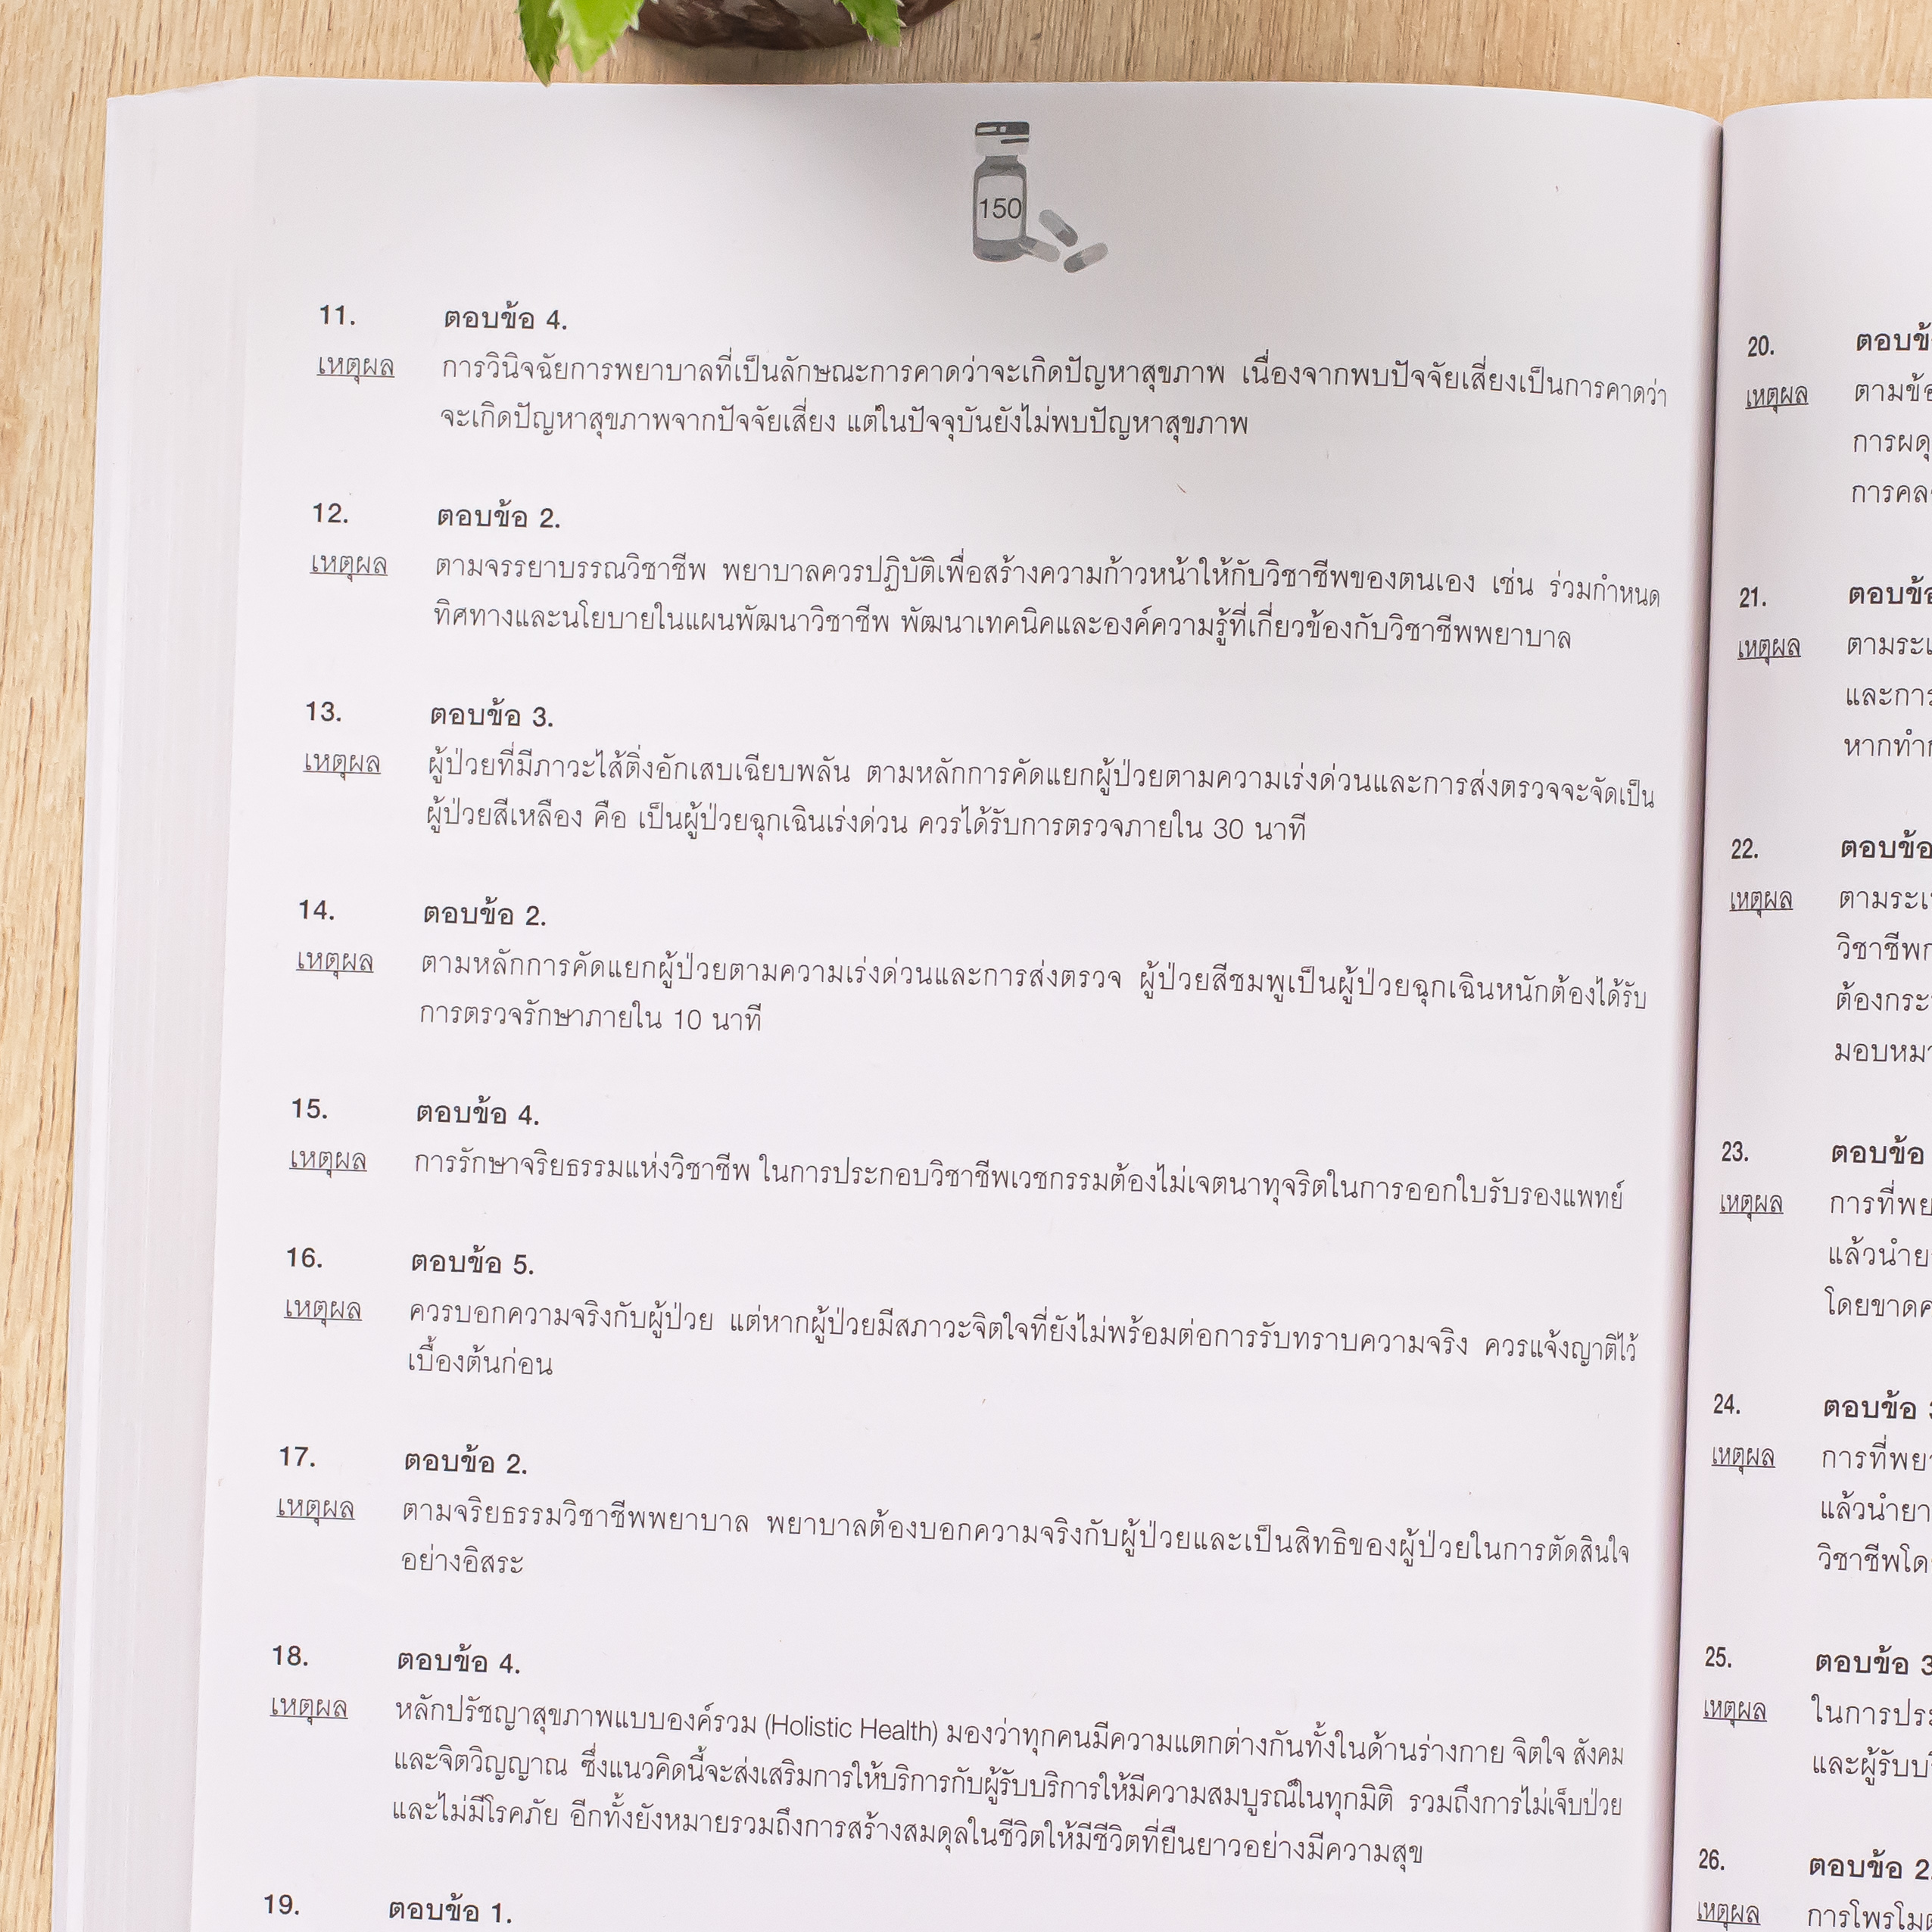 150
11. ตอบข้อ 4.
เหตุผล การวินิจฉัยการพยาบาลที่เป็นลักษณะการคาดว่าจะเกิดปัญหาสุขภาพ เนื่องจากพบปัจจัยเสี่ยงเป็นการคาดว่า
จะเกิดปัญหาสุขภาพจากปัจจัยเสี่ยง แต่ในปัจจุบันยังไม่พบปัญหาสุขภาพ
12. ตอบข้อ 2.
เหตุผล ตามจรรยาบรรณวิชาชีพ พยาบาลควรปฏิบัติเพื่อสร้างความก้าวหน้าให้กับวิชาชีพของตนเอง เช่น ร่วมกำหนด
ทิศทางและนโยบายในแผนพัฒนาวิชาชีพ พัฒนาเทคนิคและองค์ความรู้ที่เกี่ยวข้องกับวิชาชีพพยาบาล
13. ตอบข้อ 3.
เหตุผล ผู้ป่วยที่มีภาวะไส้ติ่งอักเสบเฉียบพลัน ตามหลักการคัดแยกผู้ป่วยตามความเร่งด่วนและการส่งตรวจจะจัดเป็น
ผู้ป่วยสีเหลือง คือ เป็นผู้ป่วยฉุกเฉินเร่งด่วน ควรได้รับการตรวจภายใน 30 นาที
14. ตอบข้อ 2.
เหตุผล ตามหลักการคัดแยกผู้ป่วยตามความเร่งด่วนและการส่งตรวจ ผู้ป่วยสีชมพูเป็นผู้ป่วยฉุกเฉินหนักต้องได้รับ
การตรวจรักษาภายใน 10 นาที
15. ตอบข้อ 4.
เหตุผล การรักษาจริยธรรมแห่งวิชาชีพ ในการประกอบวิชาชีพเวชกรรมต้องไม่เจตนาทุจริตในการออกใบรับรองแพทย์
16. ตอบข้อ 5.
เหตุผล ควรบอกความจริงกับผู้ป่วย แต่หากผู้ป่วยมีสภาวะจิตใจที่ยังไม่พร้อมต่อการรับทราบความจริง ควรแจ้งญาติไว้
เบื้องต้นก่อน
17. ตอบข้อ 2.
เหตุผล ตามจริยธรรมวิชาชีพพยาบาล พยาบาลต้องบอกความจริงกับผู้ป่วยและเป็นสิทธิของผู้ป่วยในการตัดสินใจ
อย่างอิสระ
18. ตอบข้อ 4.
เหตุผล หลักปรัชญาสุขภาพแบบองค์รวม (Holistic Health) มองว่าทุกคนมีความแตกต่างกันทั้งในด้านร่างกาย จิตใจ สังคม
และจิตวิญญาณ ซึ่งแนวคิดนี้จะส่งเสริมการให้บริการกับผู้รับบริการให้มีความสมบูรณ์ในทุกมิติ รวมถึงการไม่เจ็บป่วย
และไม่มีโรคภัย อีกทั้งยังหมายรวมถึงการสร้างสมดุลในชีวิตให้มีชีวิตที่ยืนยาวอย่างมีความสุข
19. ตอบข้อ 1.
20. ตอบข้
เหตุผล ตามข้อ
การผดุ
การคล
21. ตอบข้อ
เหตุผล ตามระเ
และการ
หากทำ
22. ตอบข้อ
เหตุผล ตามระเ
วิชาชีพ
ต้องกระ
มอบหมา
23. ตอบข้อ
เหตุผล การที่พย
แล้วนำย
โดยขาด
24. ตอบข้อ
เหตุผล การที่พยา
แล้วนำยา
วิชาชีพโด
25. ตอบข้อ 3
เหตุผล ในการประ
และผู้รับบ
26. ตอบข้อ 2
เหตุผล การโพรโม